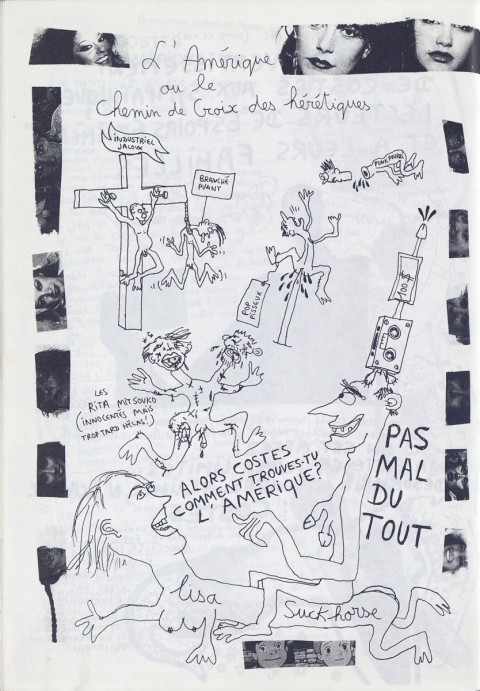 L'Amérique
ou le
Chemin de Croix des hérétiques
INDUSTRIEL
JALOUX
BRANCHÉ
PUANT
PUNK POURRI
POP
PISSEUX
100$
LES
RITA MITSOUKO
(INNOCENTÉS MAIS
TROP TARD HÉLAS!)
ALORS COSTES
COMMENT TROUVES-TU
L'AMÉRIQUE?
PAS
MAL
DU
TOUT
lisa
Suckhorse